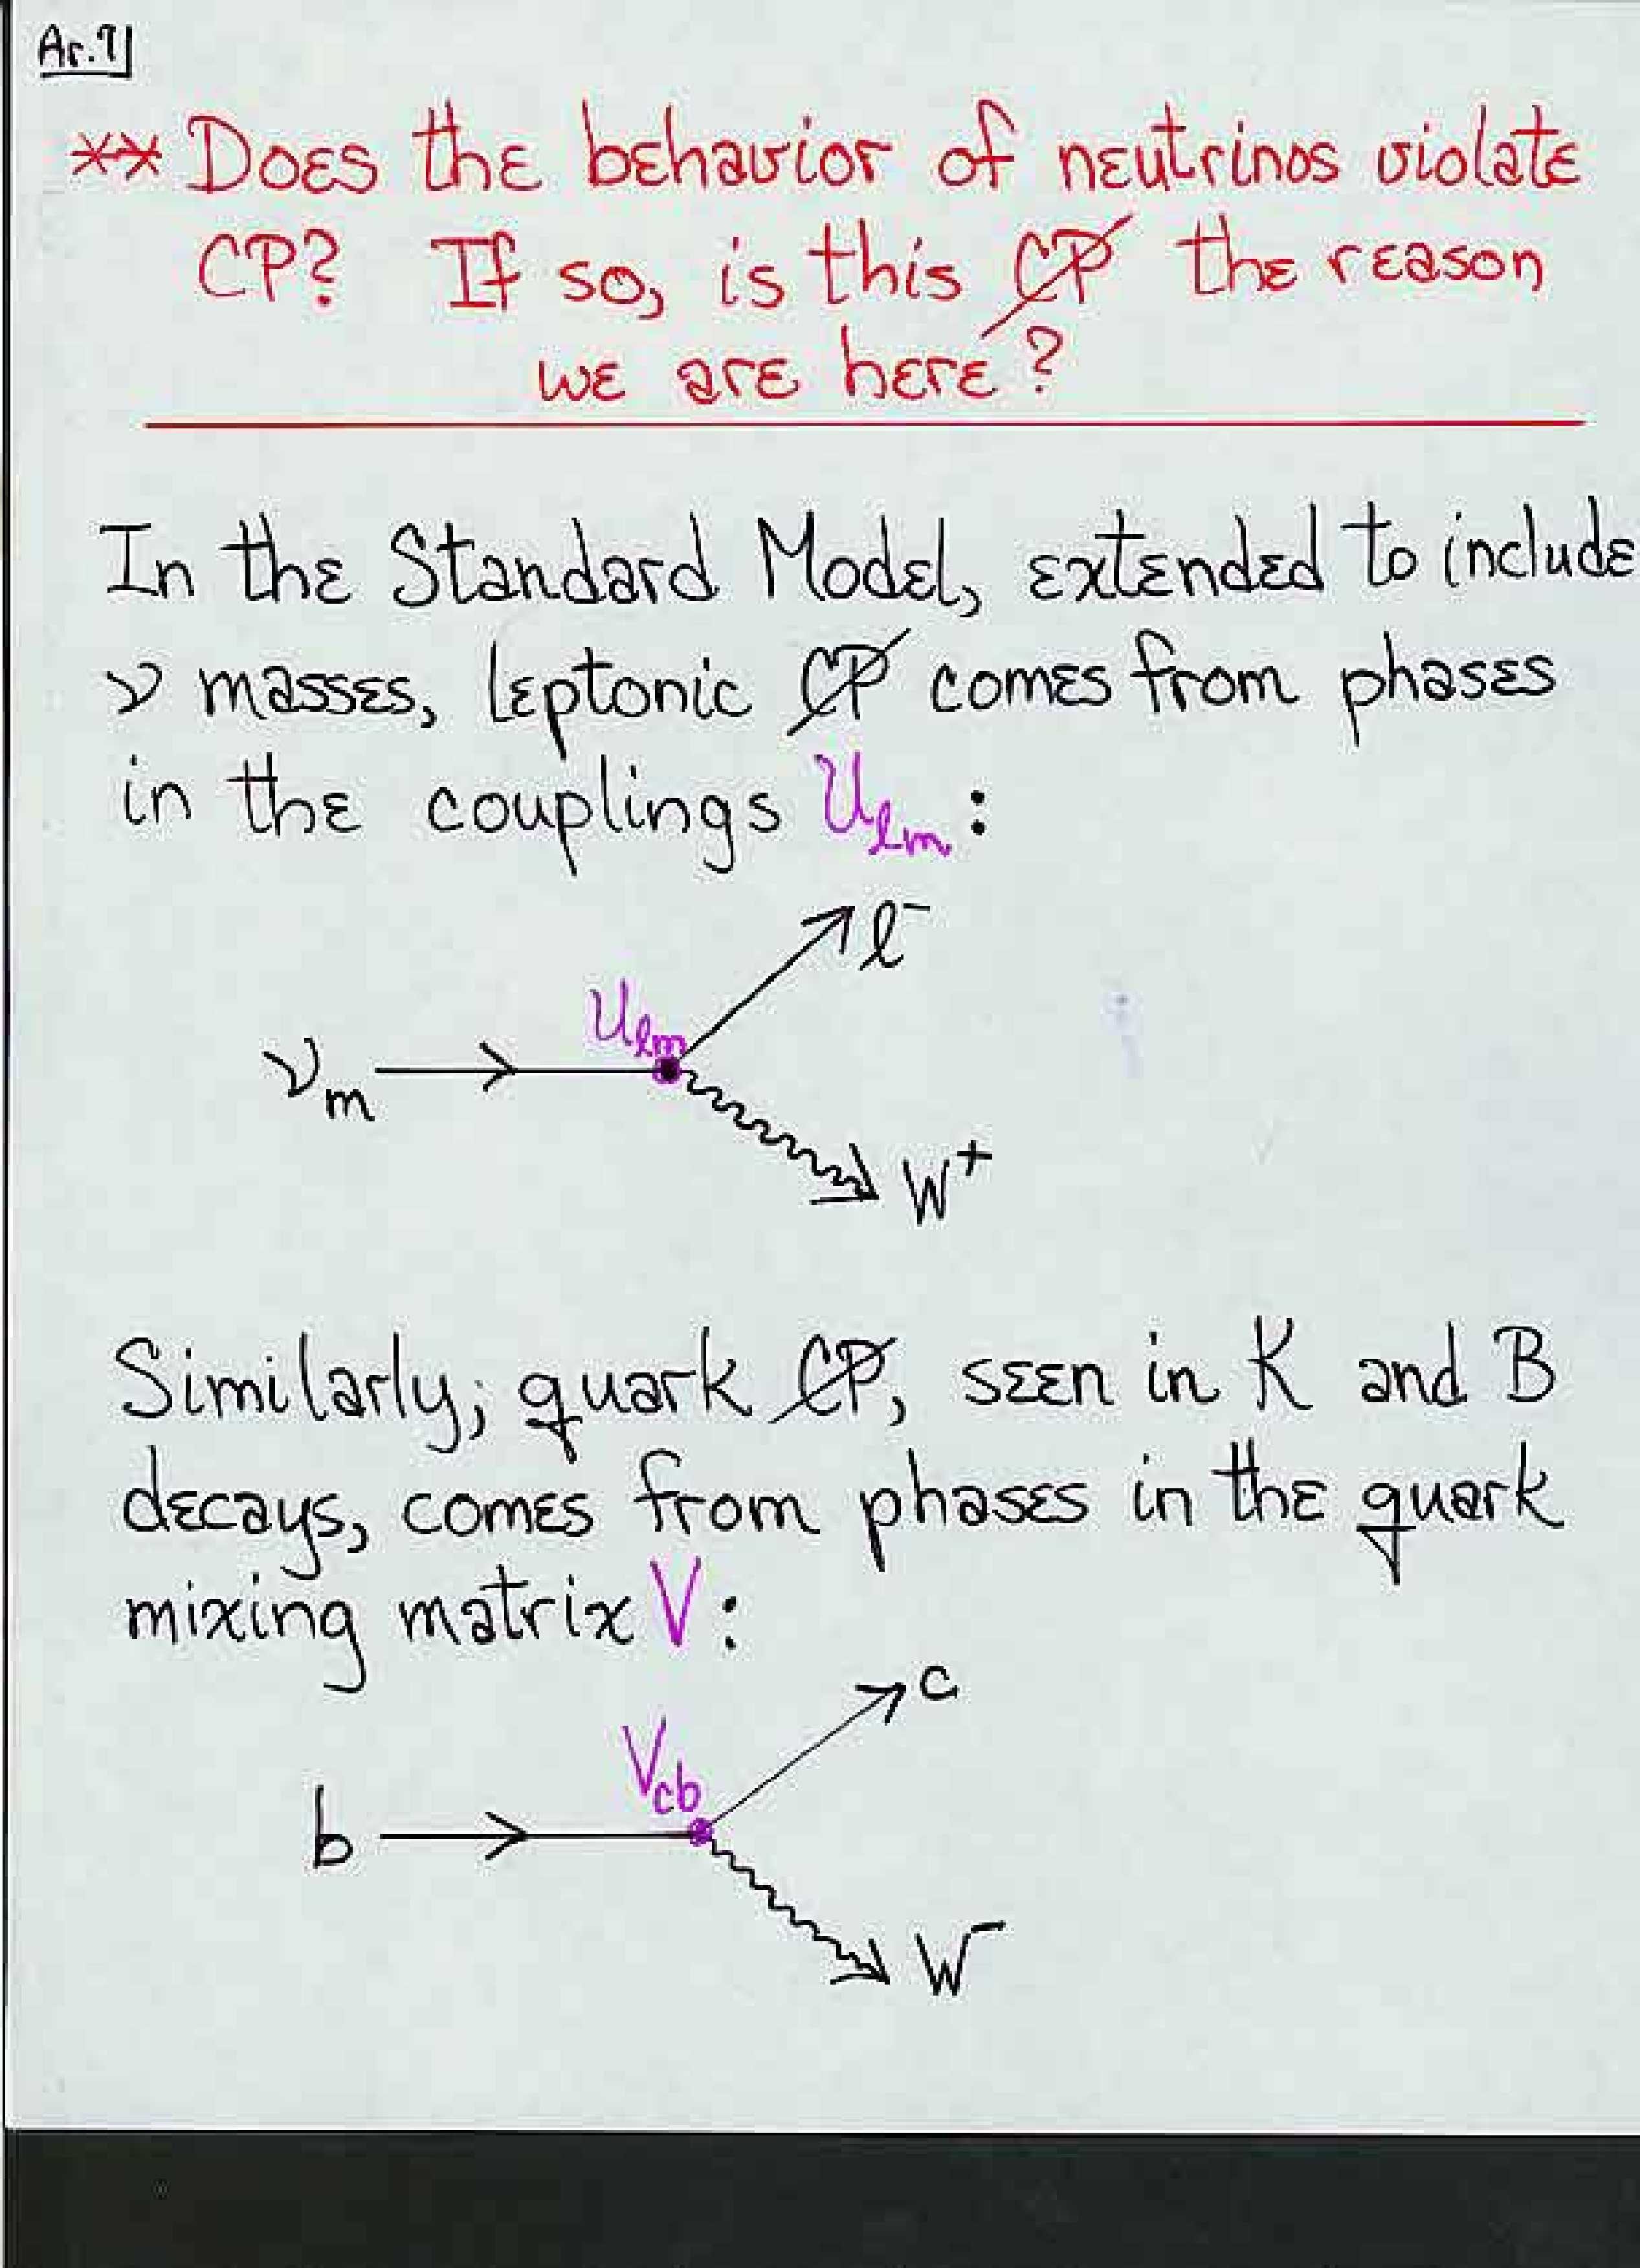 Ar.9
** Does the behavior of neutrinos violate
CP? If so, is this C̸P̸ the reason
we are here?
In the Standard Model, extended to include
ν masses, leptonic C̸P̸ comes from phases
in the couplings Uℓm:
ℓ⁻
Uℓm
νm
W⁺
Similarly, quark C̸P̸, seen in K and B
decays, comes from phases in the quark
mixing matrix V:
c
Vcb
b
W⁻